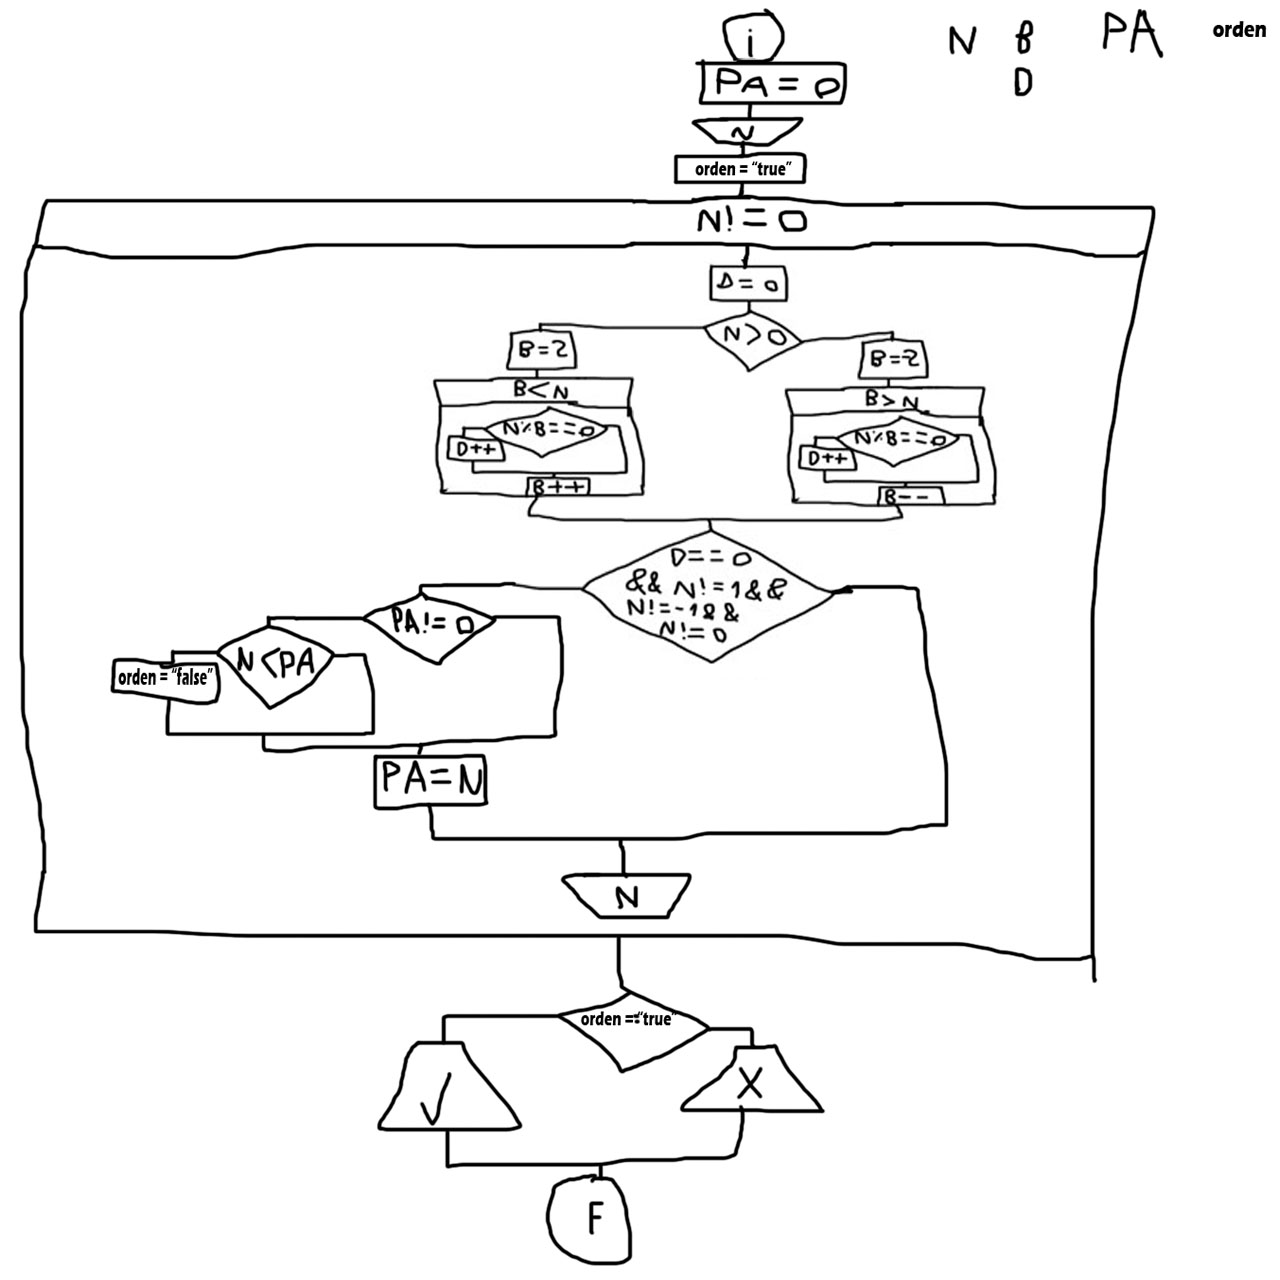 i
N B PA orden
D
PA = 0
N
orden = “true”
N! = 0
D = 0
N > 0
B = 2
B < N
N % B == 0
D++
B++
B = -2
B > N
N % B == 0
D++
B--
D == 0
&& N! = 1 & &
N! = -1 & &
N! = 0
PA! = 0
N < PA
orden = “false”
PA = N
N
orden == “true”
√
X
F